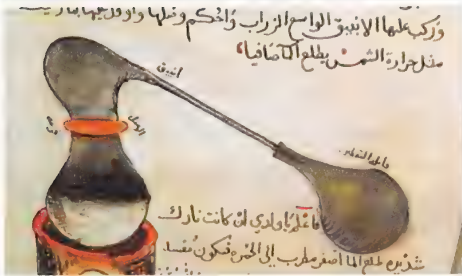 وركب عليها الانبيق الواسع الزراب واحكم وصلها واوقد عليها بنار
مثل حرارة الشمس يطلع الما صافيا
انبيق
فاعلم يا ولدي ان كانت نارك
شديده طلع الما اصفر مطرب الى الحمره فتكون مفسد